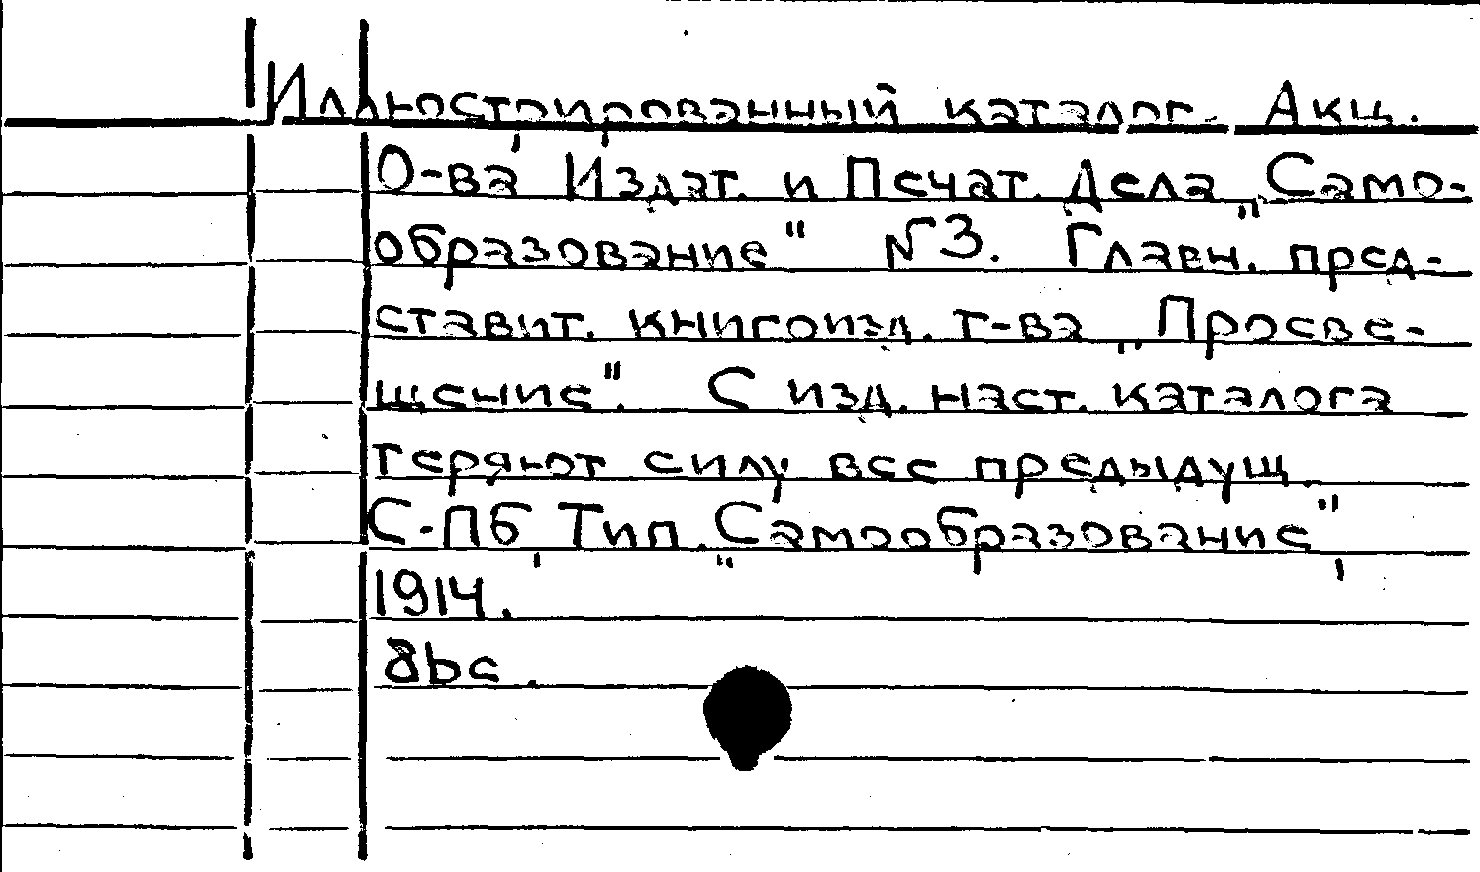 Иллюстрированный каталог Акц.
О-ва Издат. и Печат. Дела „Само-
образование" №3. Главн. пред-
ставит. книгоизд. т-ва „Просве-
щение". С изд. наст. каталога
теряют силу все предыдущ.
С-Пб, Тип. „Самообразование",
1914.
8bc.